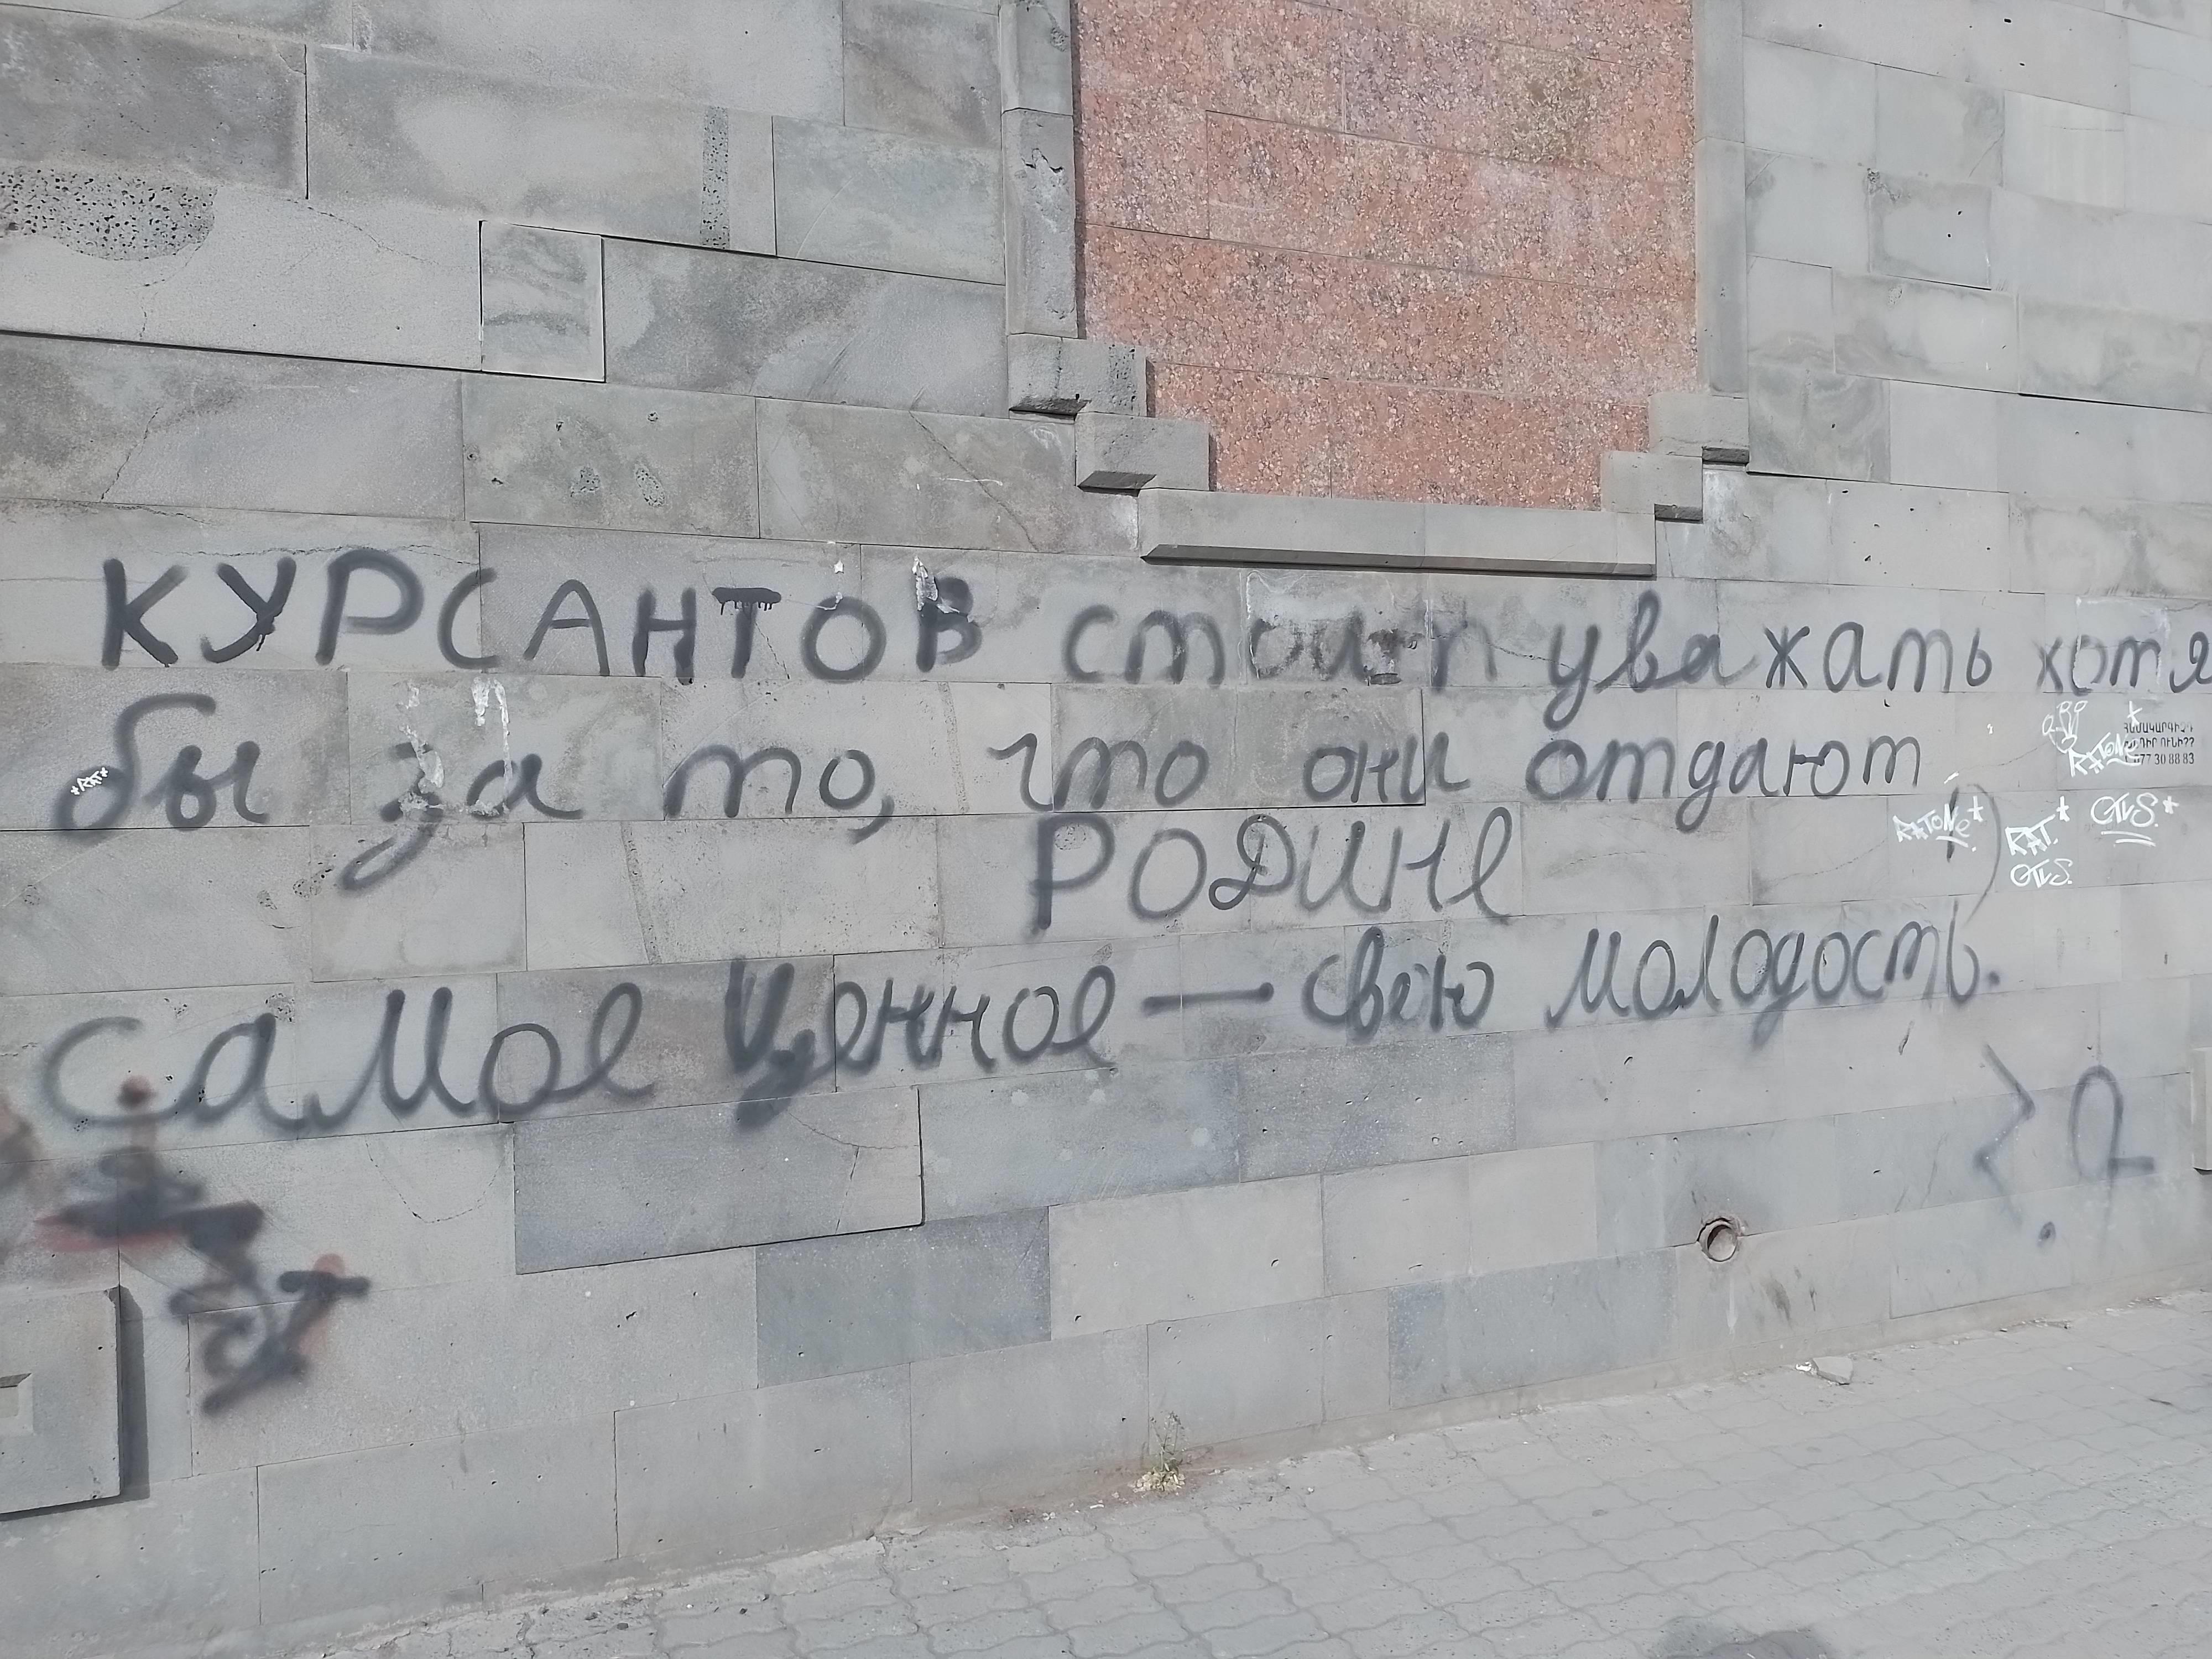 КУРСАНТОВ стоит уважать хотя
бы за то, что они отдают
РОДИНЕ
самое ценное — свою молодость.
*RAT*
RATONe
ՀԱՄԱԿԱՐԳԻՉԴ
077 30 88 83
RATONe*
RAT.*
GTLS.*
GTLS.